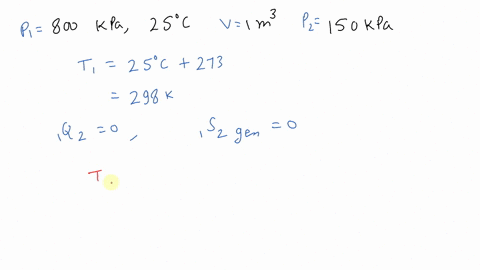 P₁= 800 KPa, 25°C V=1m³ P₂= 150 KPa
T₁ = 25°C + 273
= 298 K
₁Q₂ =0, ₁S₂ gen =0
T